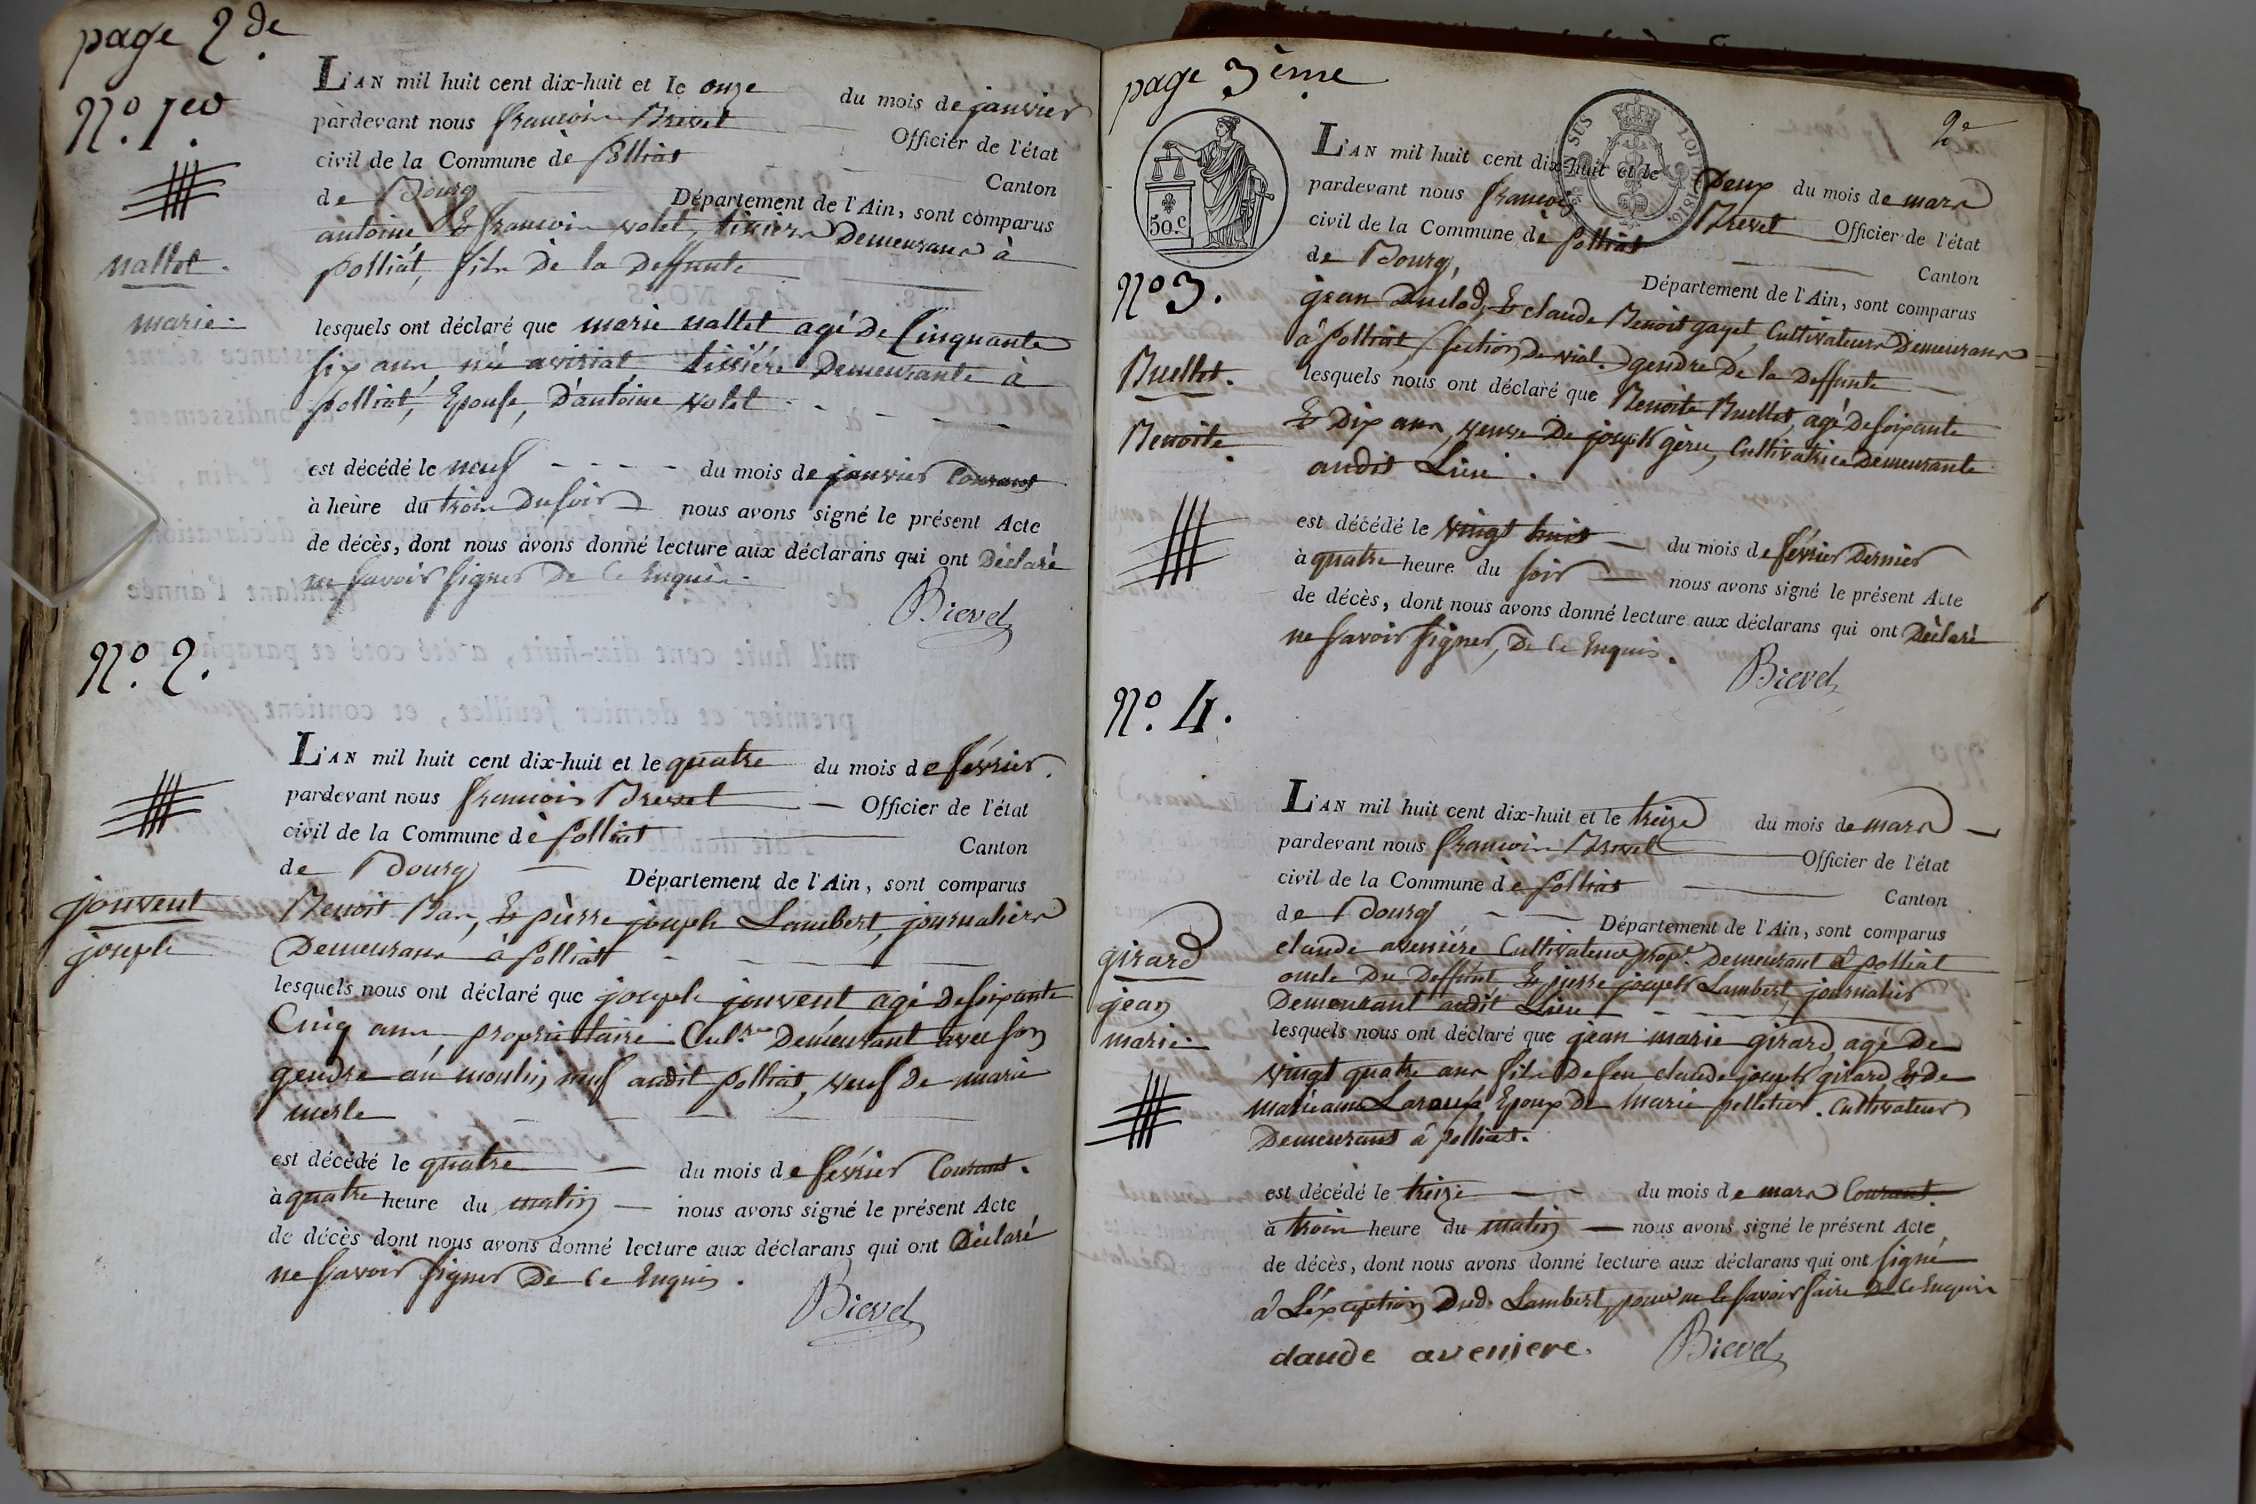 page 2de
N.º 1er
L'AN mil huit cent dix-huit et le onze du mois de janvier
pardevant nous françois Brevet Officier de l'état
civil de la Commune de polliat Canton
de Bourg Département de l'Ain, sont comparus
antoine & françois volet, tisiers Demeurans à
polliat, fils De la Deffunte
nallet
marie
lesquels ont déclaré que marie nallet agé De Cinquante
six ans, née a viriat, tissiére Demeurante à
polliat, Epouse, D'antoine volet
est décédé le neuf du mois de janvier Courant
à heure du trois Du soir nous avons signé le présent Acte
de décès, dont nous avons donné lecture aux déclarans qui ont Déclaré
ne savoir signer De Ce Enquis.
Brevet
N.º 2.
L'AN mil huit cent dix-huit et le quatre du mois de février.
pardevant nous françois Brevet Officier de l'état
civil de la Commune de polliat Canton
de Bourg Département de l'Ain, sont comparus
Benoit Bar, & pierre joseph Lambert, journaliers
Demeurans à polliat
jouvent
joseph
lesquels nous ont déclaré que joseph jouvent agé De soixante
Cinq ans, proprietaire Cult.r Demeurant avec son
gendre au moulin neuf audit polliat, veuf De marie
merle
est décédé le quatre du mois de février Courant.
à quatre heure du matin nous avons signé le présent Acte
de décès dont nous avons donné lecture aux déclarans qui ont Déclaré
ne savoir signer De Ce Enquis.
Brevet
page 3ème
2e
50.C
SUS LOI 1816.
L'AN mil huit cent dix-huit et le Deux du mois de mars
pardevant nous françois Brevet Officier de l'état
civil de la Commune de polliat Canton
de Bourg, Département de l'Ain, sont comparus
Nº 3.
jean Duclos, & claude Benoit gayet, Cultivateurs Demeurans
à polliat (section De vial.) gendre De la Deffunte
Buellet.
Benoite
lesquels nous ont déclaré que Benoite Buellet, agé De soixante
& Dix ans, veuve De joseph géru, Cultivatrice Demeurante
audit Lieu.
est décédé le vingt huit du mois de février Dernier
à quatre heure du soir nous avons signé le présent Acte
de décès, dont nous avons donné lecture aux déclarans qui ont Déclaré
ne savoir signer, De Ce Enquis.
Brevet
Nº. 4.
L'AN mil huit cent dix-huit et le treize du mois de mars
pardevant nous françois Brevet Officier de l'état
civil de la Commune de polliat Canton
de Bourg Département de l'Ain, sont comparus
claude aveniére Cultivateur prop.re Demeurant à polliat
oncle Du Deffunt, & pierre joseph Lambert, journalier
Demeurant audit Lieu
girard
jean
marie
lesquels nous ont déclaré que jean marie girard, agé De
vingt quatre ans fils De feu claude joseph girard, & de
marieanne, Epoux De marie pelletier. Cultivateur
Demeurant à polliat.
est décédé le treize du mois de mars Courant
à trois heure du matin nous avons signé le présent Acte
de décès, dont nous avons donné lecture aux déclarans qui ont signé
à L'éxception Dud. Lambert, pour ne le savoir faire De Ce Enquis
claude aveniere.
Brevet